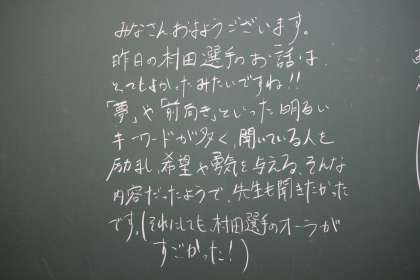 みなさんおはようございます。
昨日の村田選手のお話は、
とってもよかったみたいですね!!
「夢」や「前向き」といった明るい
キーワードが多く、聞いている人を
励まし、希望や勇気を与える、そんな
内容だったようで、先生も聞きたかった
です。(それにしても、村田選手のオーラが
すごかった!)